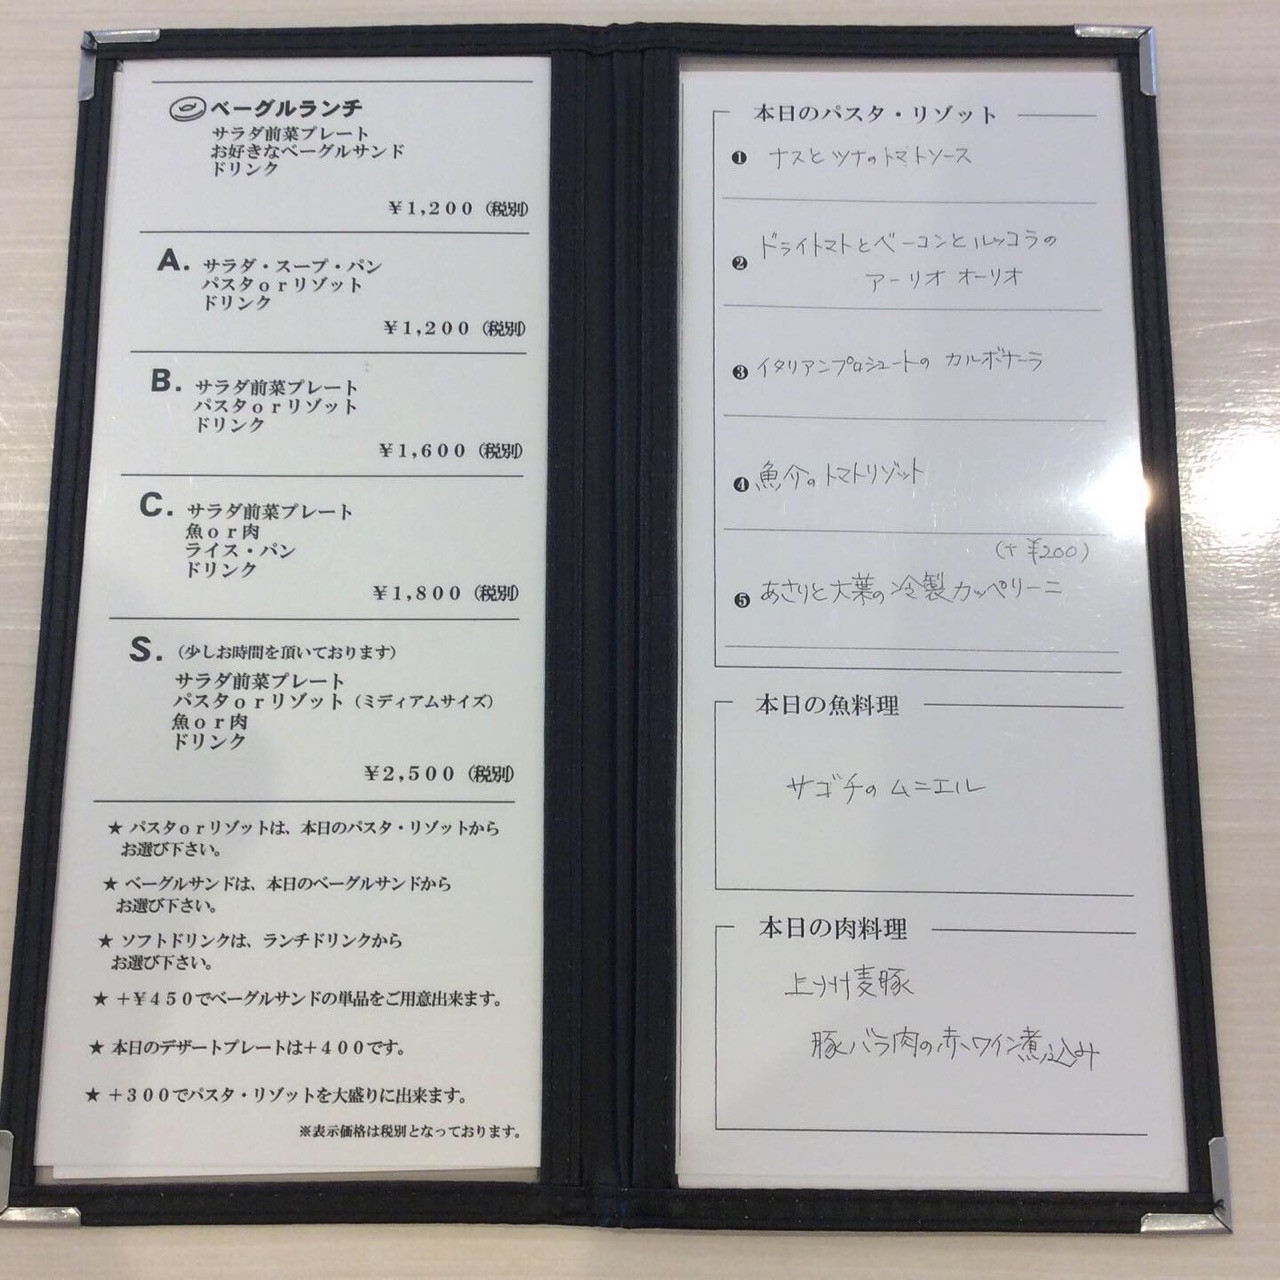 ベーグルランチ
サラダ前菜プレート
お好きなベーグルサンド
ドリンク
￥1,200（税別）
A. サラダ・スープ・パン
パスタorリゾット
ドリンク
￥1,200（税別）
B. サラダ前菜プレート
パスタorリゾット
ドリンク
￥1,600（税別）
C. サラダ前菜プレート
魚or肉
ライス・パン
ドリンク
￥1,800（税別）
S.（少しお時間を頂いております）
サラダ前菜プレート
パスタorリゾット（ミディアムサイズ）
魚or肉
ドリンク
￥2,500（税別）
★ パスタorリゾットは、本日のパスタ・リゾットから
お選び下さい。
★ ベーグルサンドは、本日のベーグルサンドから
お選び下さい。
★ ソフトドリンクは、ランチドリンクから
お選び下さい。
★ ＋￥４５０でベーグルサンドの単品をご用意出来ます。
★ 本日のデザートプレートは＋４００です。
★ ＋３００でパスタ・リゾットを大盛りに出来ます。
※表示価格は税別となっております。
本日のパスタ・リゾット
❶ ナスとツナのトマトソース
❷ ドライトマトとベーコンとルッコラの
アーリオ オーリオ
❸ イタリアンプロシュートの カルボナーラ
❹ 魚介のトマトリゾット
(+ ¥200)
❺ あさりと大葉の冷製カッペリーニ
本日の魚料理
サゴチのムニエル
本日の肉料理
上州麦豚
豚バラ肉の赤ワイン煮込み